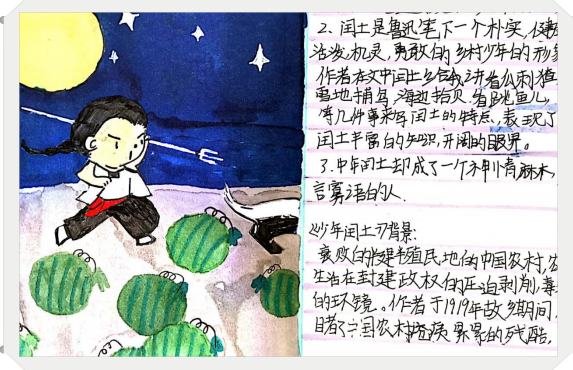 2、闰土是鲁迅笔下一个朴实,
活泼机灵,勇敢的乡村少年的形象
作者在文中闰土给我讲看瓜刺猹
雪地捕鸟,海边拾贝,看跳鱼儿,
等几件事来写闰土的特点,表现了
闰土丰富的知识,开阔的眼界。
3.中年闰土却成了一个神情麻木,
言寡语的人.
《少年闰土》背景:
衰败的封建殖民地的中国农村,农
生活在封建政权的压迫剥削,
的环镜。作者于1919年故乡期间
目睹了中国农村疮痍累累的残酷,